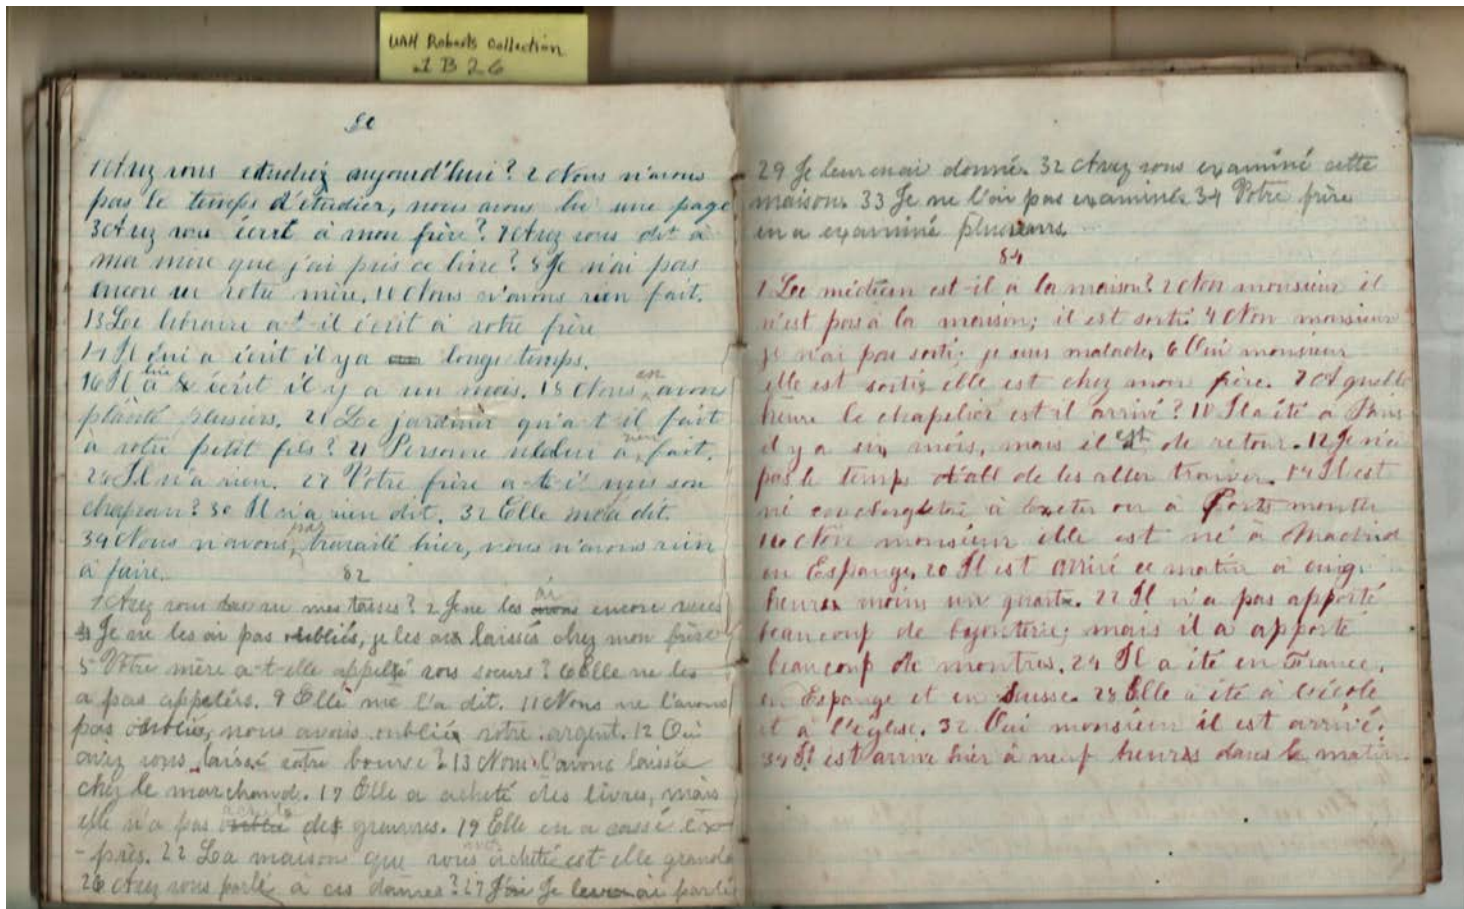 UAH Roberts Collection
1 B 26
80
1 Avez vous etudiez aujourd'hui? 2 Nous n'avons
pas le temps d'étudier, nous avons lu une page
3 Avez vous écrit à mon frère? 7 Avez vous dit à
ma mère que j'ai pris ce livre? 8 Je n'ai pas
encore vu votre mère. 11 Nous n'avons rien fait.
13 Le libraire a-t-il écrit à votre frère
14 Il lui a écrit il y a longs temps.
16 Il lui a écrit il y a un mois. 18 Nous en avons
planté plusiers. 21 Le jardinier qu'a-t-il fait
à votre petit fils? 21 Personne a rien fait.
24 Il n'a rien. 27 Votre frère a-t-il mis son
chapeau? 30 Il n'a rien dit. 32 Elle m'a dit.
34 Nous n'avons pas travaillé hier, nous n'avons rien
à faire.
82
1 Avez vous vu mes tasses? 2 Je ne les ai encore vues
Je ne les ai pas oubliés, je les ai laissés chez mon frère
5 Votre mère a-t-elle appelsé vos soeurs? 6 Elle ne les
a pas appelérs. 9 Elle me l'a dit. 11 Nous ne l'avons
pas oubliée, nous avons oubliée votre argent. 12 Ou
avez vous laissé votre bourse? 13 Nous l'avons laissée
chez le marchand. 17 Elle a acheté des livres, mais
elle n'a pas acheté des gravures. 19 Elle en a cassé ex-
-près. 22 La maisons que vous avez acheté est-elle grande
26 Avez vous parlé à ces dames? 27 Je leur ai parlé
29 Je leur en ai donné. 32 Avez vous examiné cette
maison. 33 Je ne l'ai pas examinée 34 Votre frère
en a examiné plusieurs.
84
1 Le médecin est-il a la maison? 2 Non monsieur il
n'est pas à la maison; il est sorti. 4 Non monsieur
je n'ai pas sorti; je suis malade. 6 Oui monsieur
elle est sortie elle est chez mon frère. 7 A quelle
heure le chapelier est-il arrivé? 10 Il a été a Paris
il y a six mois, mais il est de retour. 12 Je n'ai
pas le temps de les aller trouver. 14 Il est
né en Angleterre à Exeter ou à Portsmouth
16 Non monsieur elle est né à Madrid
en Espange. 20 Il est arrivé ce matin à cinq
heures moins un quart. 22 Il n'a pas apporté
beaucoup de bijouterie; mais il a apporté
beaucoup de montres. 24 Il a été en France,
en Espange et en Suisse. 28 Elle a été à l'école
et à l'église. 32 Oui monsieur il est arrivé.
34 Il est arrivé hier à neuf heures dans le matin.